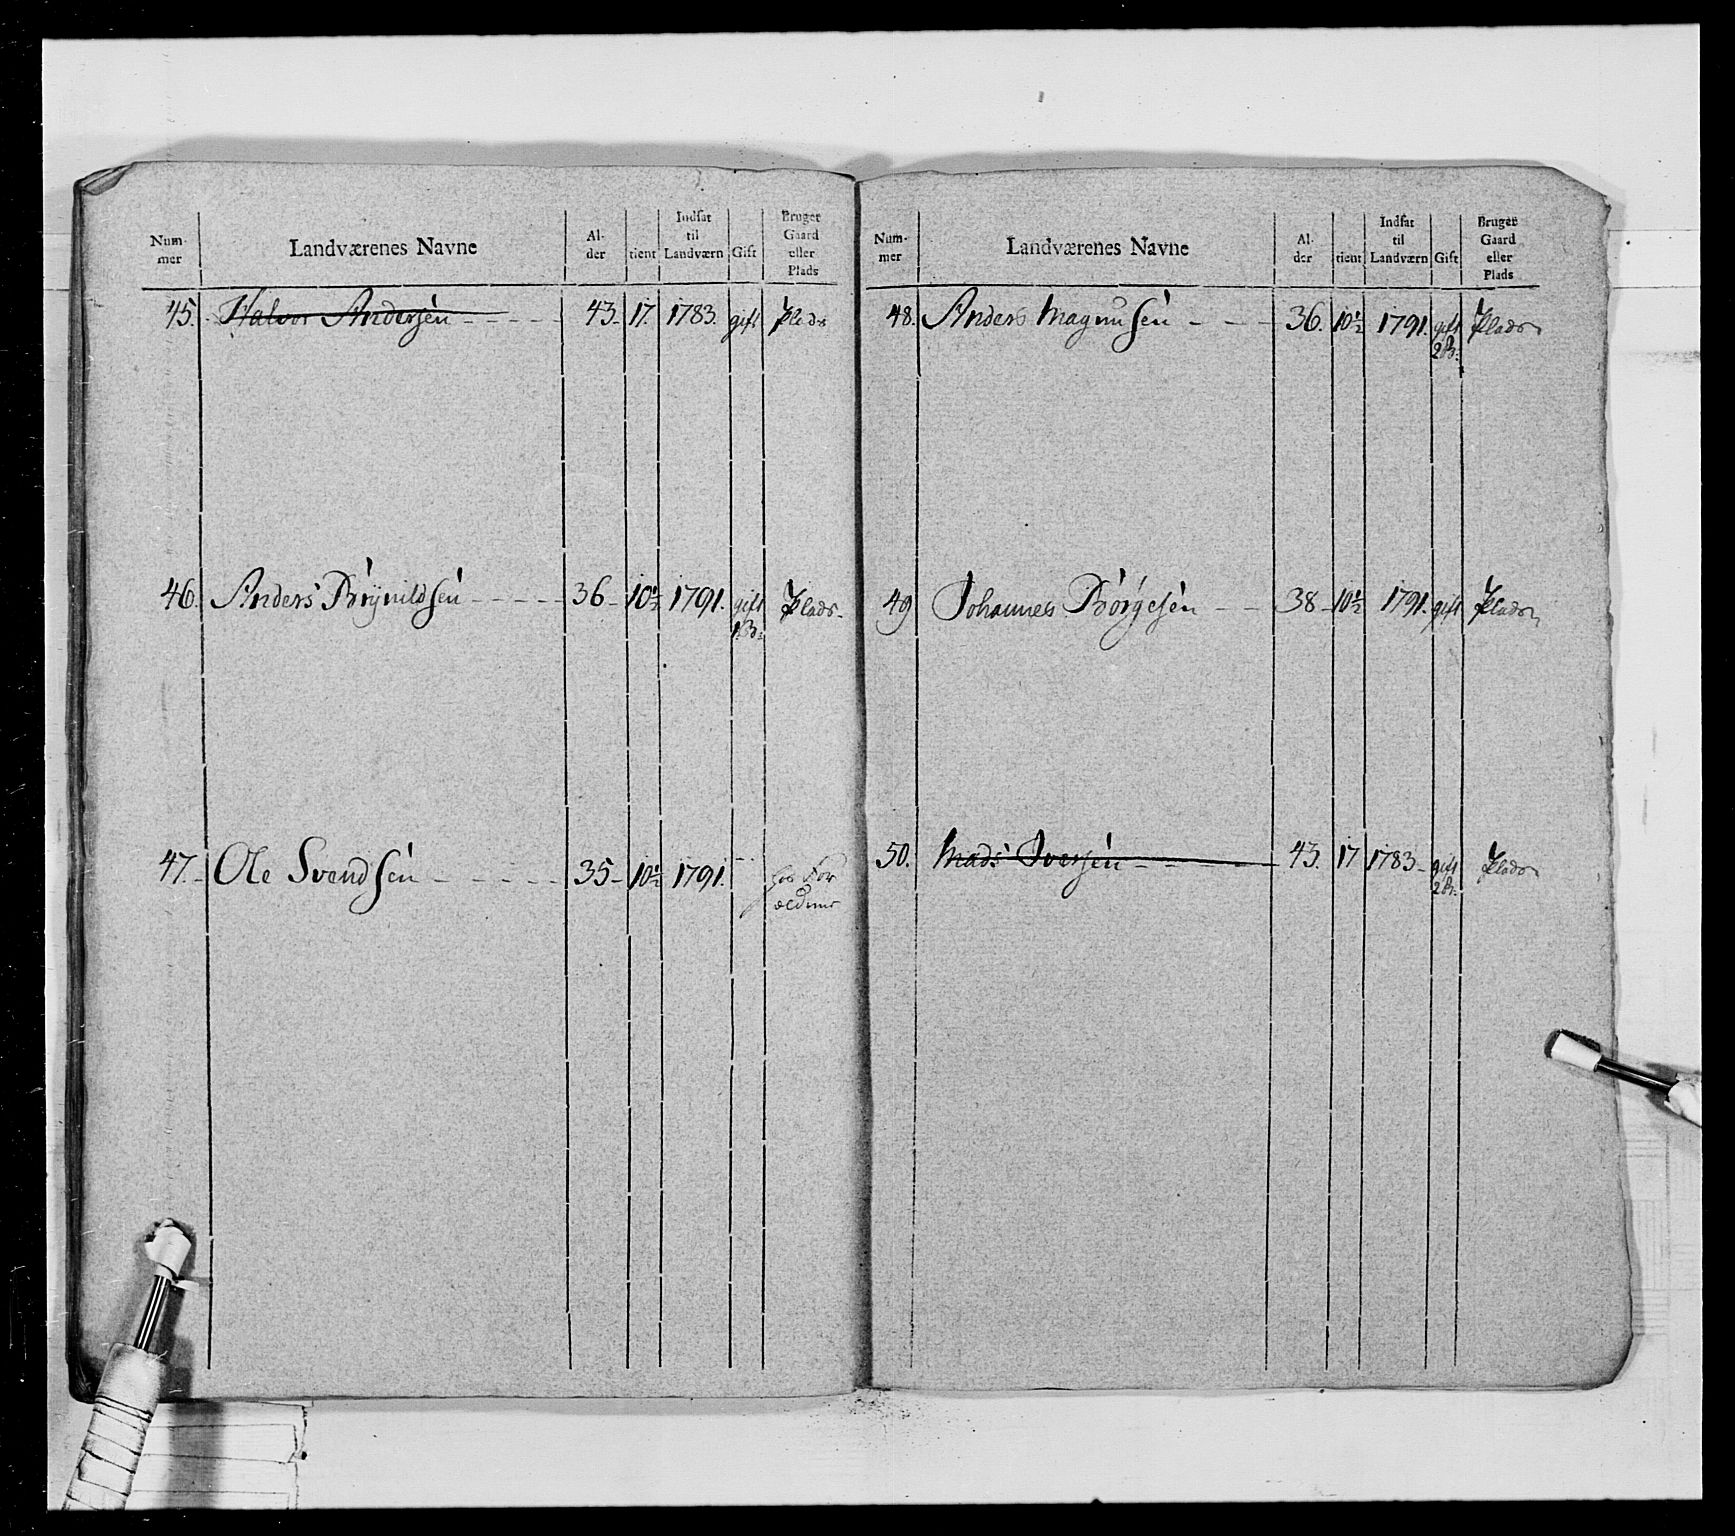 Num- mer | Landværenes Navne | Al- der | tient | Indsat til Landværn | Gift | Bruger Gaard eller Plads
45. Halvor Andersen - - - - - 43. 17. 1783. gift Plads
46. Anders Brynildsen - - - - - 36 - 10½ 1791. gift Plads -
1. B:
47. Ole Svendsen - - - - - 35 - 10½ 1791. hos For
ældrene
Num- mer | Landværenes Navne | Al- der | tient | Indsat til Landværn | Gift | Bruger Gaard eller Plads
48. Anders Magnusen - - - 36. 10½ 1791. gift Plads
2 B:
49 Johannes Börgesen - - 38 - 10½ 1791. gift Plads
50. Mads Iversen - - 43. 17 1783 - gift Plads
2 B: